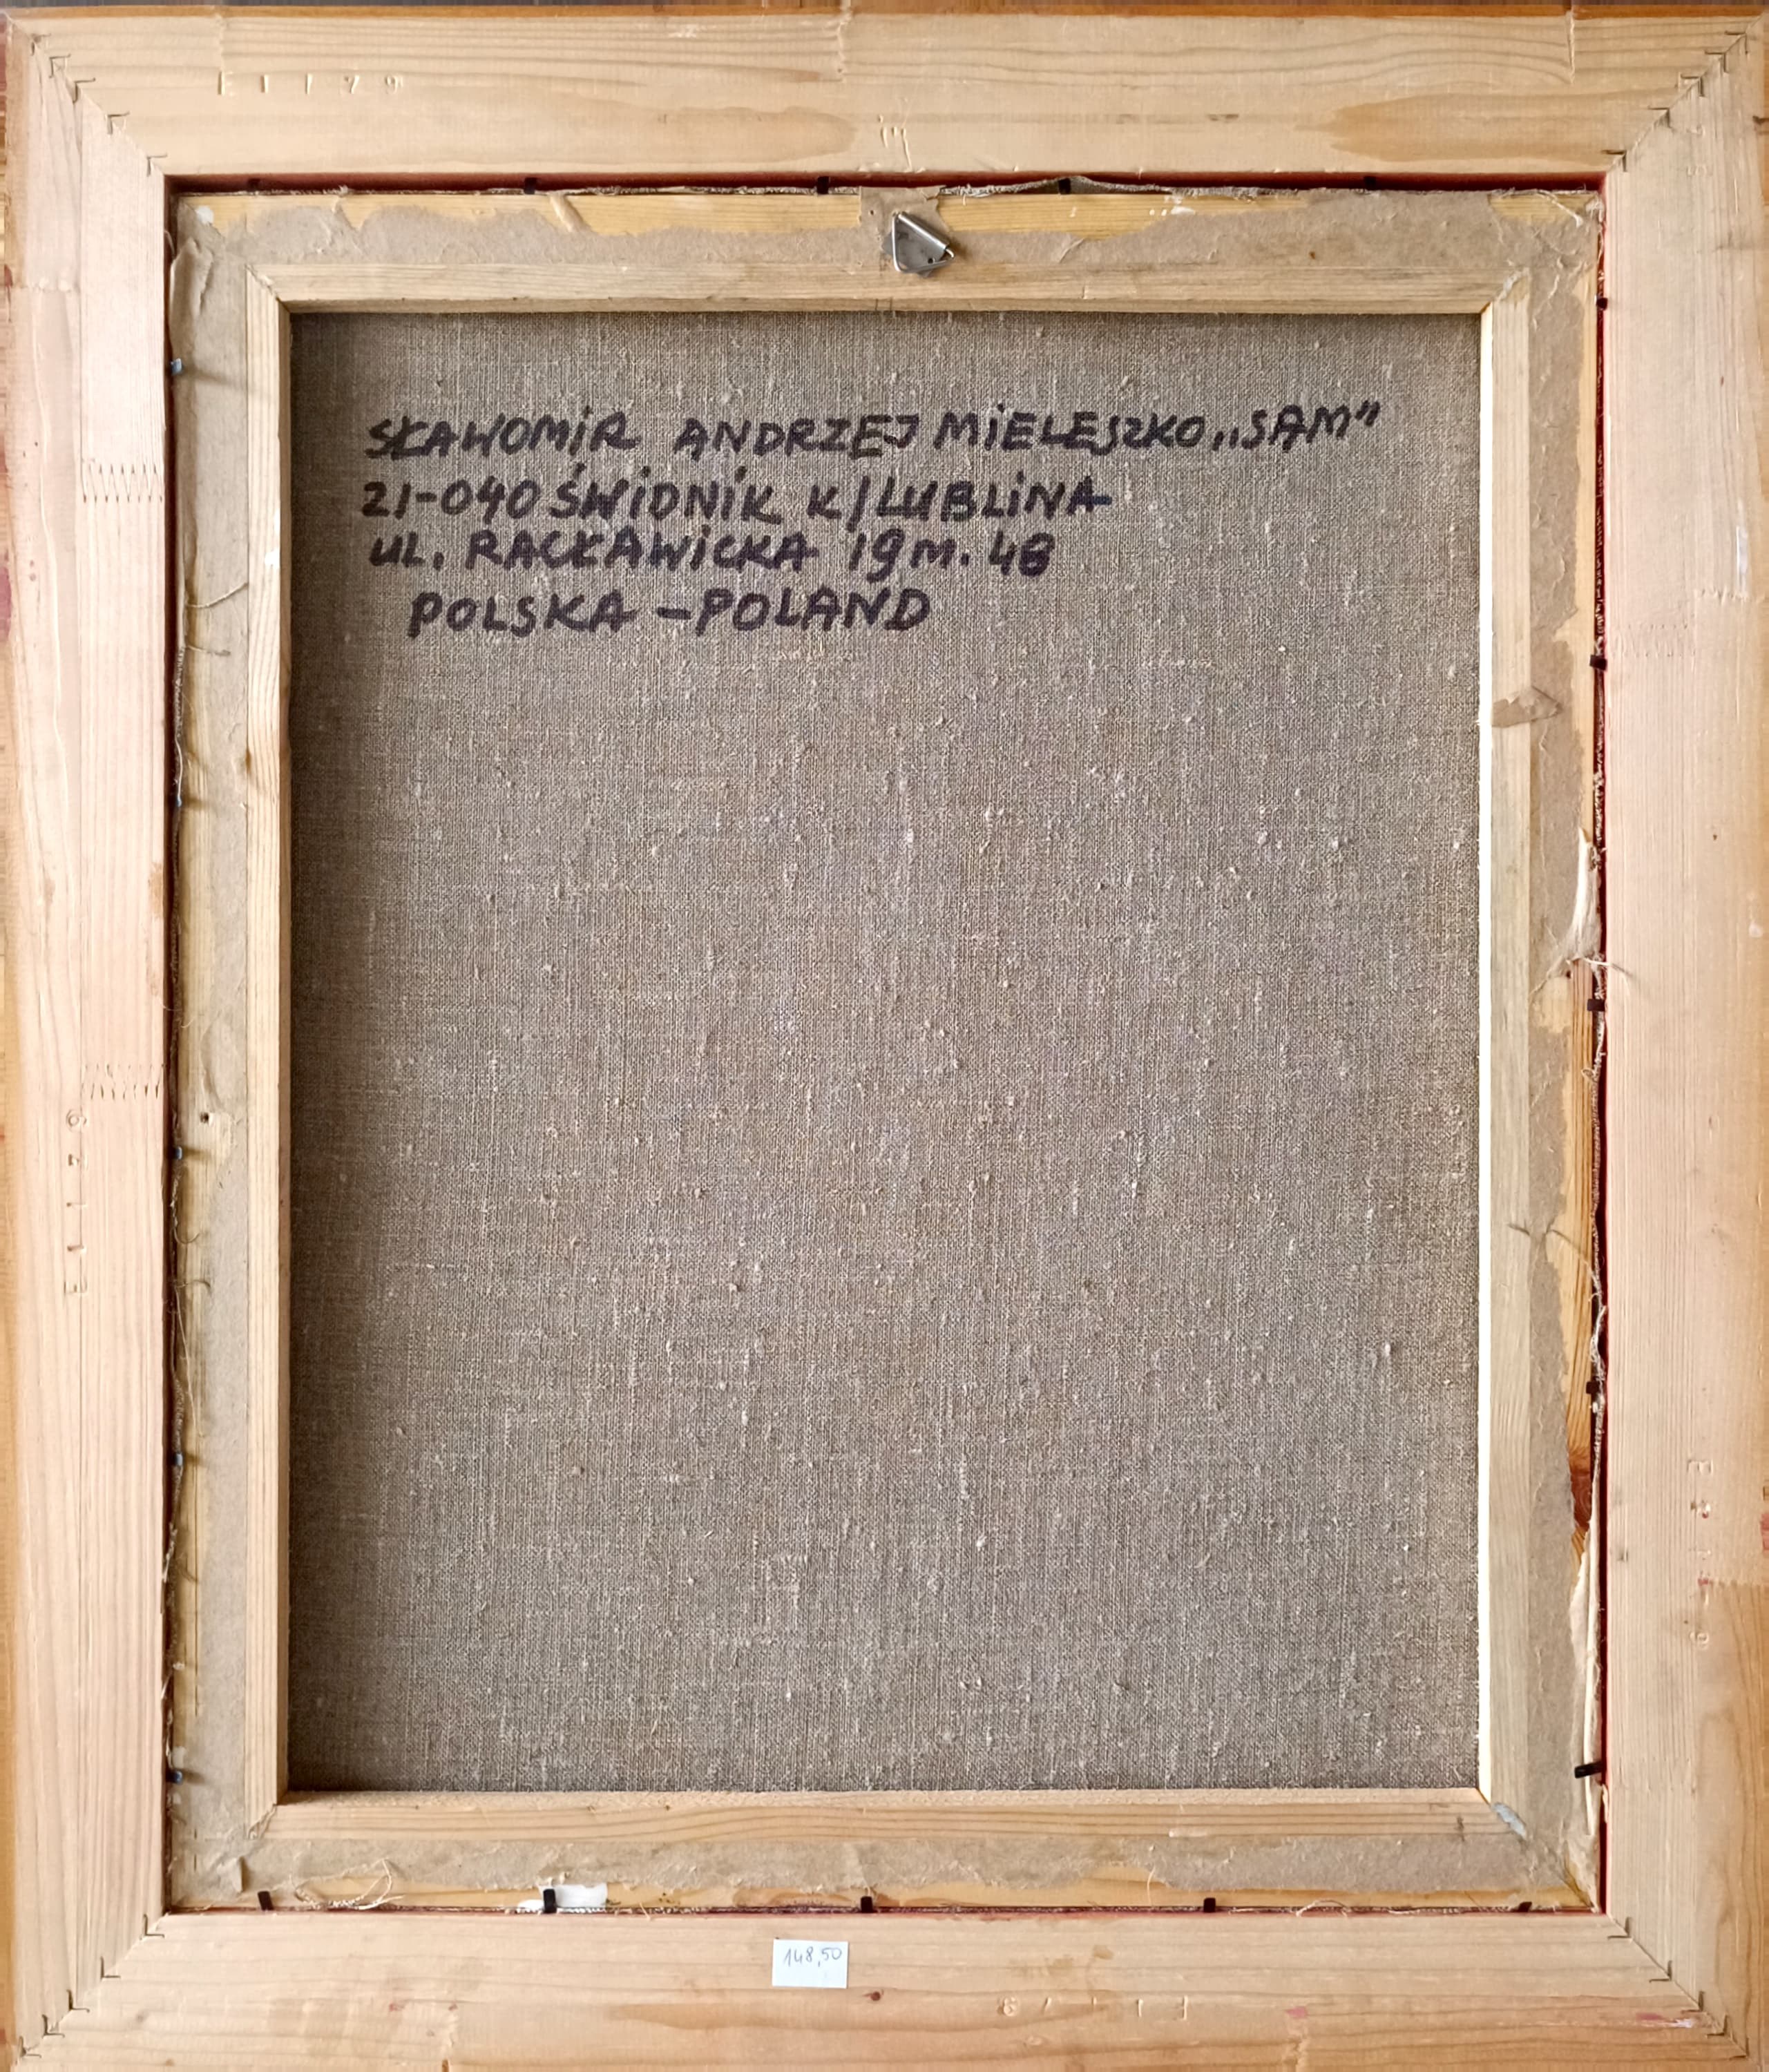 E1179
SŁAWOMiR ANDRZEJ MiELESZKO „SAM”
21-040 ŚWiDNiK K/LUBLiNA
UL. RACŁAWiCKA 19 m. 48
POLSKA – POLAND
E1179
148,50